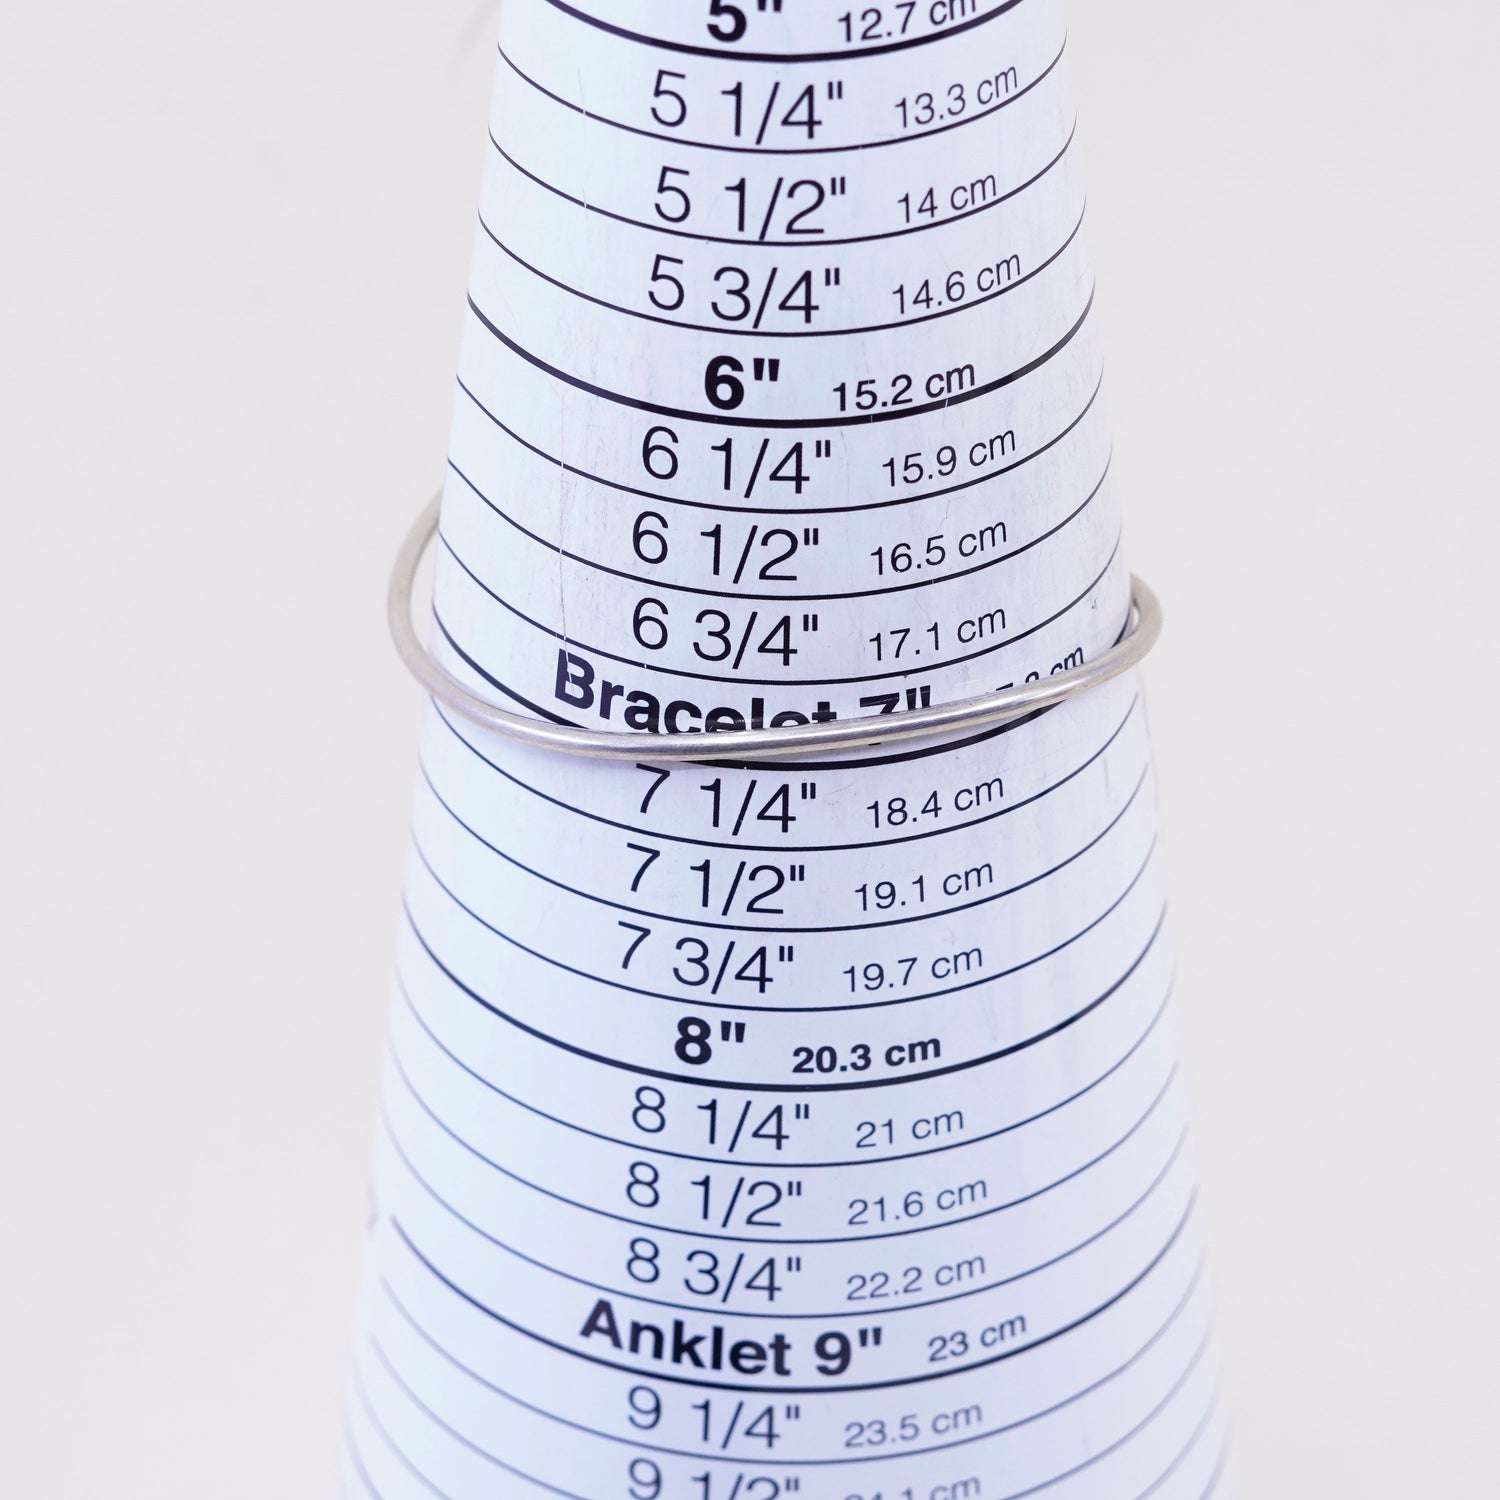 5" 12.7 cm
5 1/4" 13.3 cm
5 1/2" 14 cm
5 3/4" 14.6 cm
6" 15.2 cm
6 1/4" 15.9 cm
6 1/2" 16.5 cm
6 3/4" 17.1 cm
Bracelet 7" cm
7 1/4" 18.4 cm
7 1/2" 19.1 cm
7 3/4" 19.7 cm
8" 20.3 cm
8 1/4" 21 cm
8 1/2" 21.6 cm
8 3/4" 22.2 cm
Anklet 9" 23 cm
9 1/4" 23.5 cm
9 1/2" cm